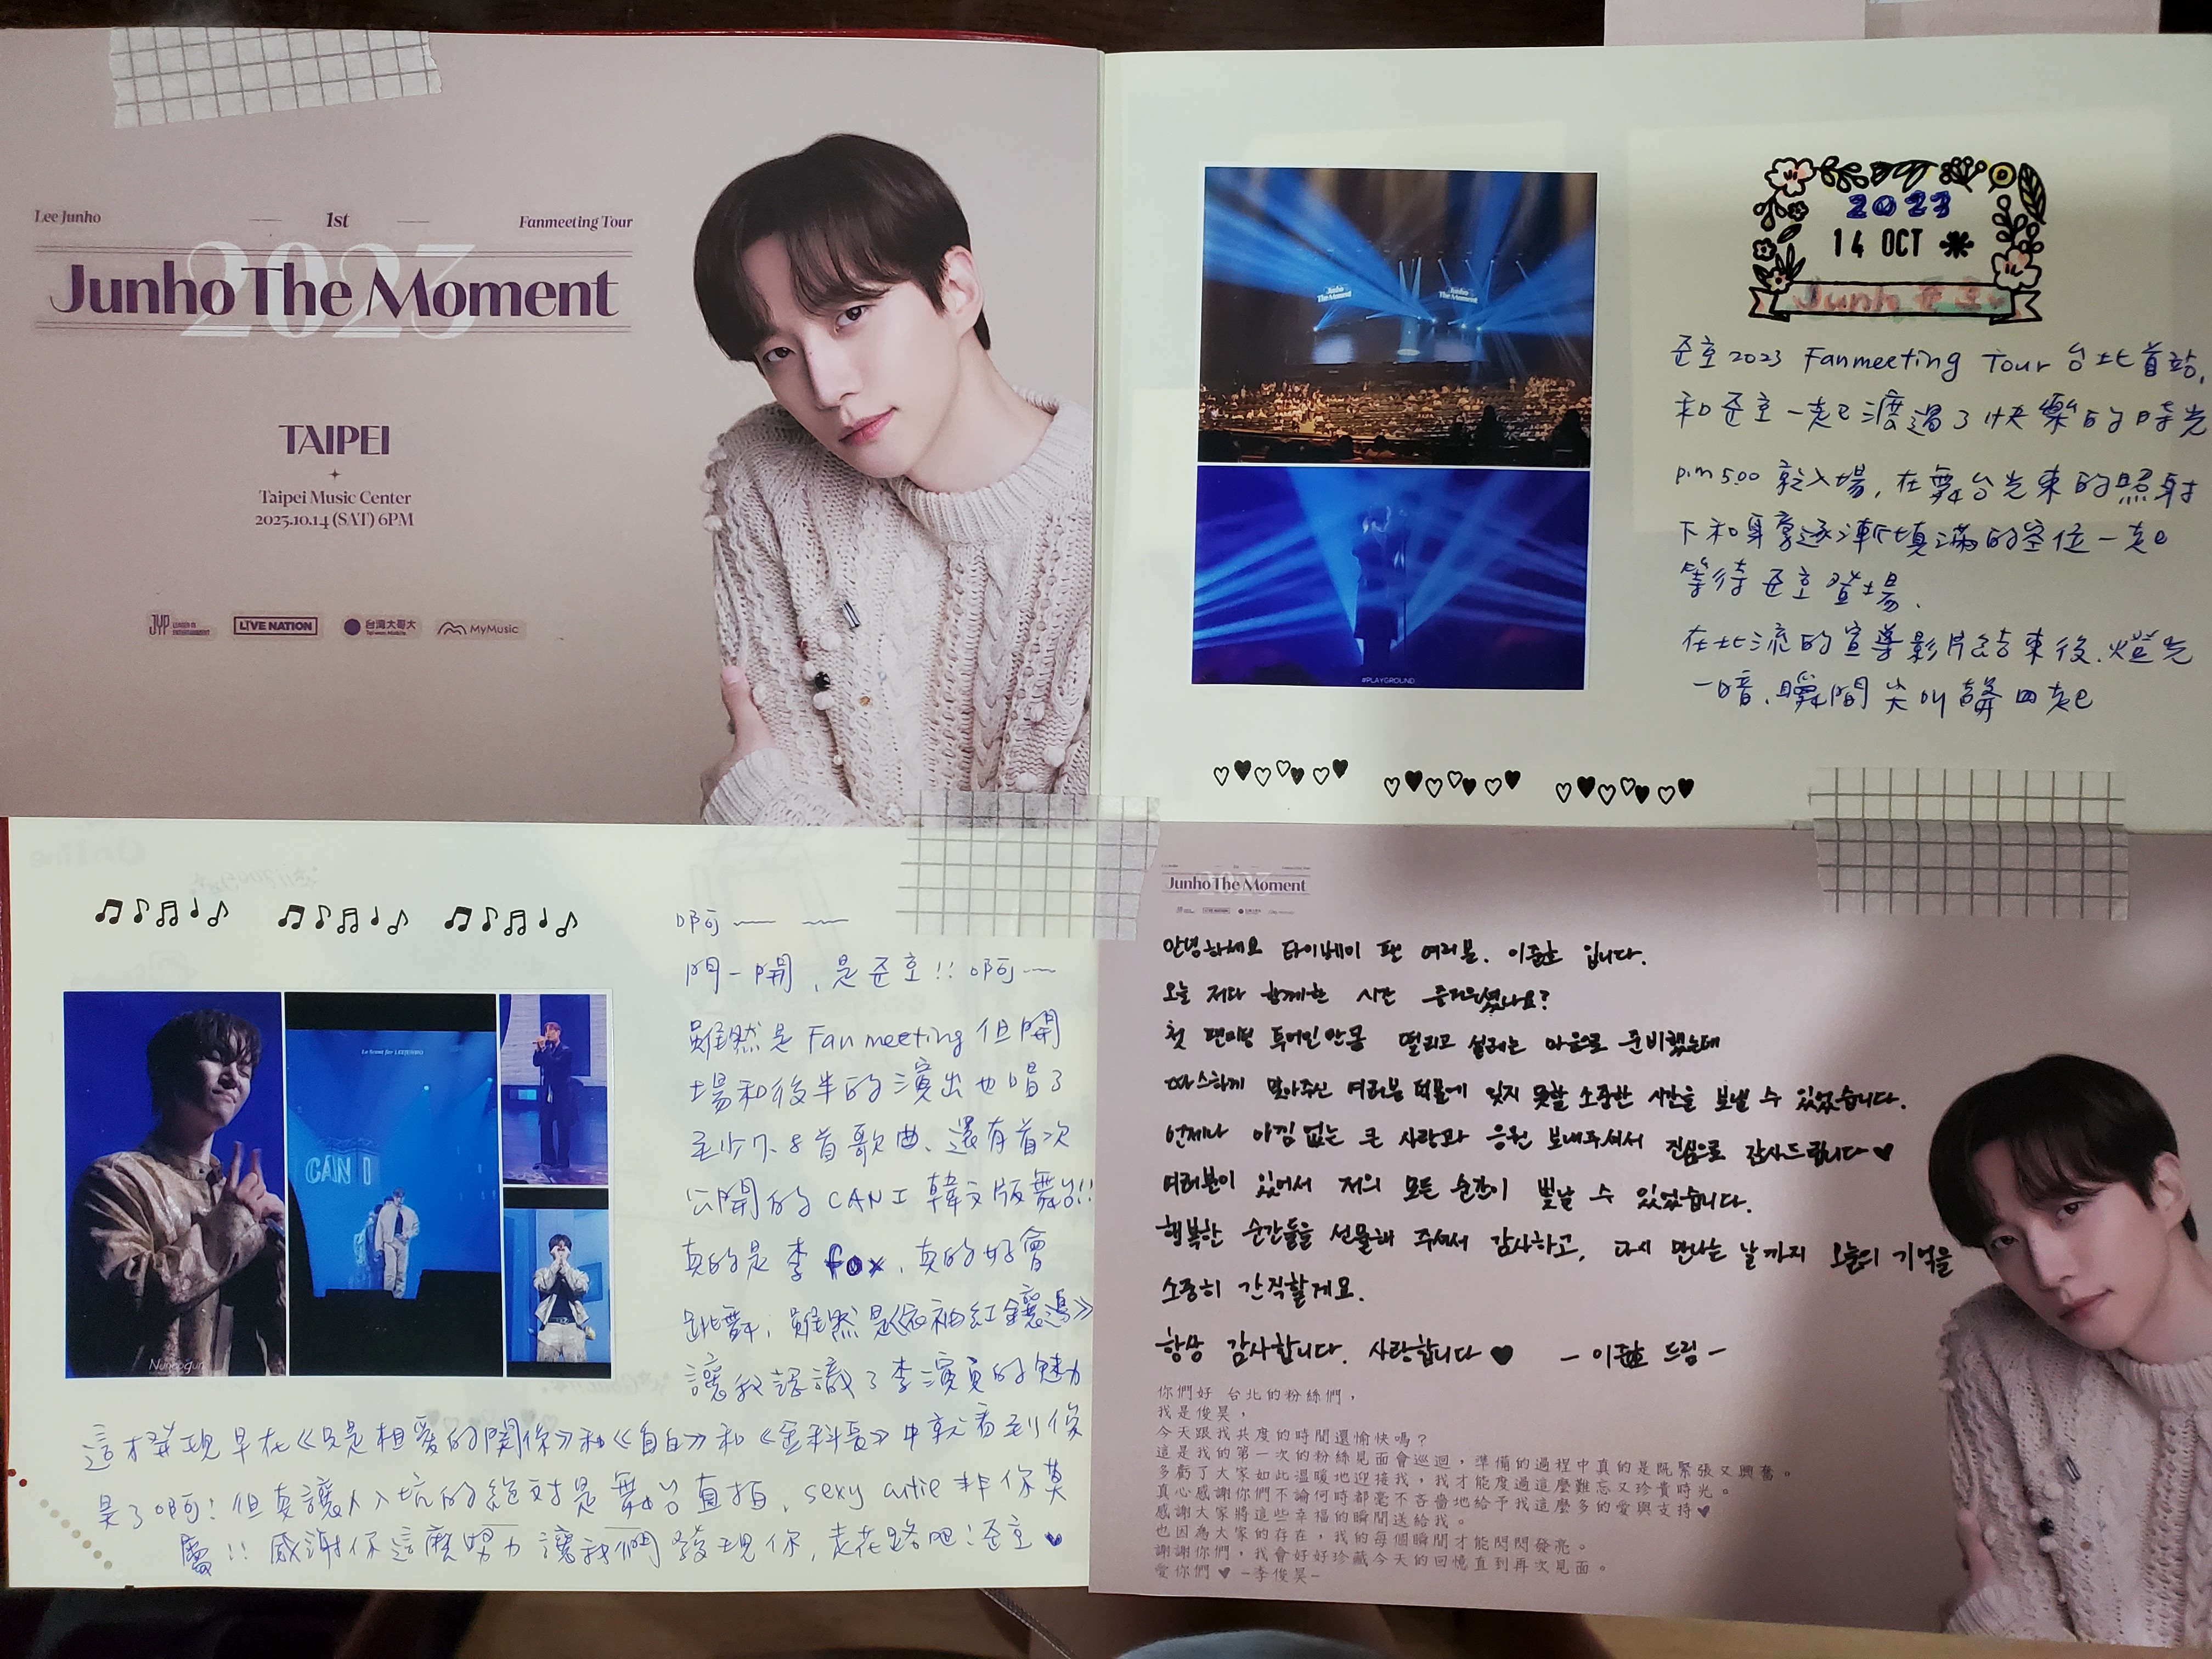 Lee Junho
1st
Fanmeeting Tour
2023
Junho The Moment
TAIPEI
Taipei Music Center
2023.10.14 (SAT) 6PM
JYP LEADER IN ENTERTAINMENT
LIVE NATION
台灣大哥大 Taiwan Mobile
MyMusic
Junho The Moment
Junho The Moment
#PLAYGROUND
2023
14 OCT
Junho 준호
준호 2023 Fanmeeting Tour 台北首站,
和준호一起渡過了快樂的時光
pm 5:00 就入場, 在舞台光束的照射
下和身旁逐漸填滿的座位一起
等待준호登場.
在北流的宣導影片結束後.燈光
一暗.瞬間尖叫聲四起
啊
門一開,是준호!! 啊
雖然是 Fan meeting 但開
場和後半的演出也唱了
至少7、8首歌曲、還有首次
公開的 CAN I 韓文版舞台!!
真的是李 fox, 真的好會
跳舞; 雖然是《衣袖紅鑲邊》
讓我認識了李演員的魅力
這才發現早在《只是相愛的關係》和《自白》和《金科長》中就看到你
昊了啊! 但真讓人入坑的絕對是舞台直拍, sexy cutie 非你莫
屬!! 感謝你這麼努力讓我們發現你, 走花路吧! 준호 ♥
CAN I
Nuneogun
Junho The Moment
안녕하세요 타이베이 팬 여러분. 이준호 입니다.
오늘 저와 함께한 시간 즐거우셨나요?
첫 팬미팅 투어인만큼 떨리고 설레는 마음으로 준비했는데
따스하게 맞아주신 여러분 덕분에 잊지 못할 소중한 시간을 보낼 수 있었습니다.
언제나 아낌없는 큰 사랑과 응원 보내주셔서 진심으로 감사드립니다 ♥
여러분이 있어서 저의 모든 순간이 빛날 수 있었습니다.
행복한 순간들을 선물해 주셔서 감사하고, 다시 만나는 날까지 오늘의 기억을
소중히 간직할게요.
항상 감사합니다. 사랑합니다 ♥ - 이준호 드림 -
你們好 台北的粉絲們,
我是俊昊,
今天跟我共度的時間還愉快嗎?
這是我的第一次的粉絲見面會巡迴,準備的過程中真的是既緊張又興奮。
多虧了大家如此溫暖地迎接我,我才能度過這麼難忘又珍貴時光。
真心感謝你們不論何時都毫不吝嗇地給予我這麼多的愛與支持♥
感謝大家將這些幸福的瞬間送給我。
也因為大家的存在,我的每個瞬間才能閃閃發亮。
謝謝你們,我會好好珍藏今天的回憶直到再次見面。
愛你們 ♥ -李俊昊-